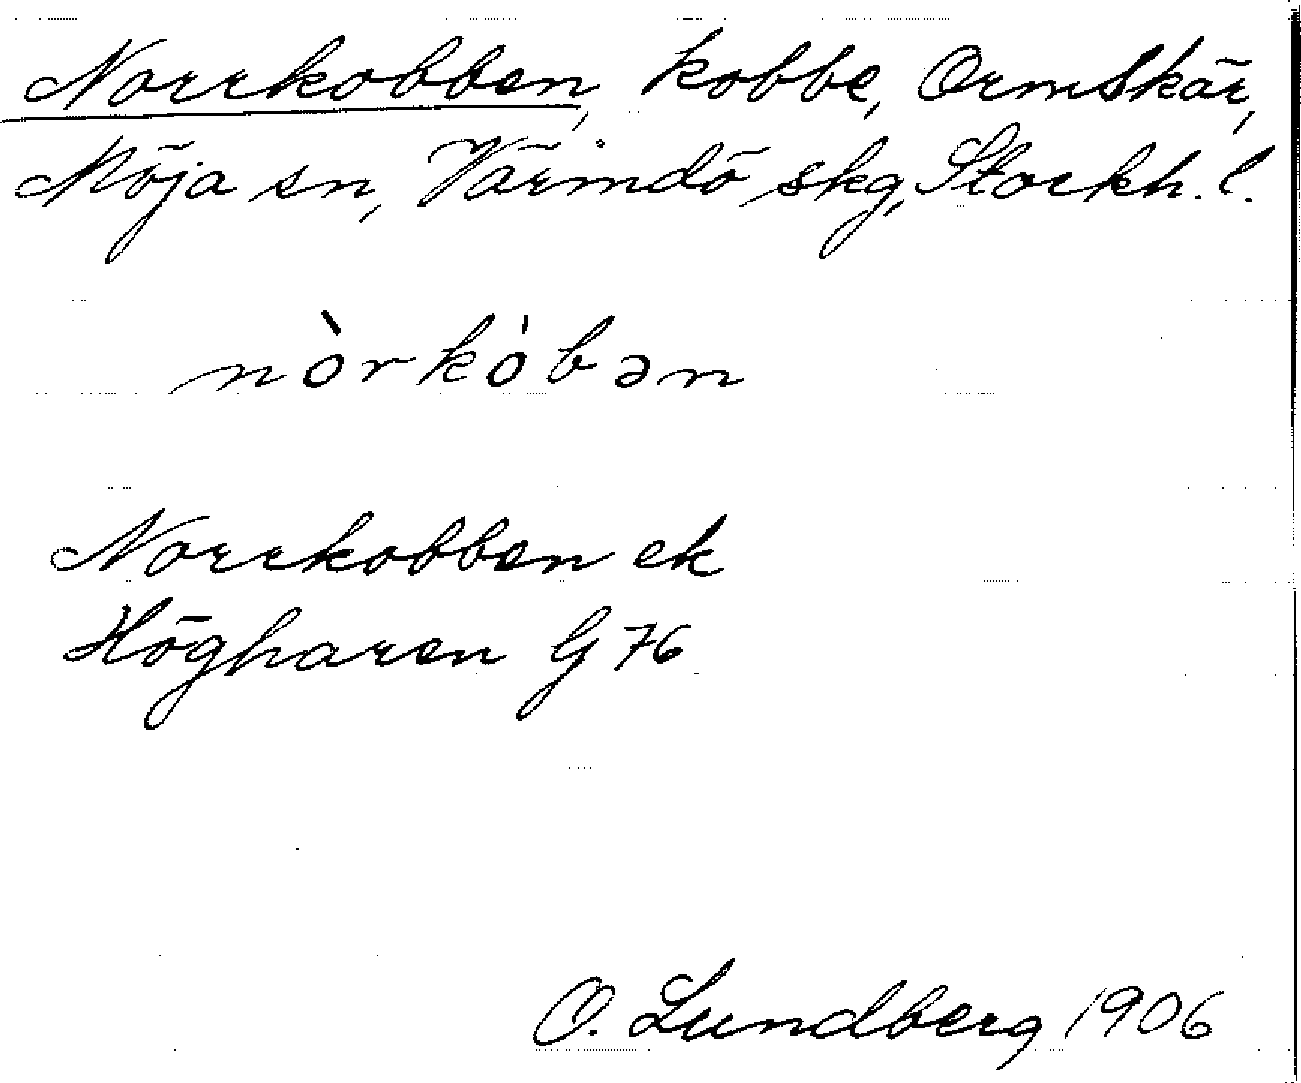 Norrkobben, kobbe, Ormskär,
Möja sn, Värmdö skg, Stockh. l.
nòrkòbən
Norrkobben ek
Högharen G 76
O. Lundberg 1906